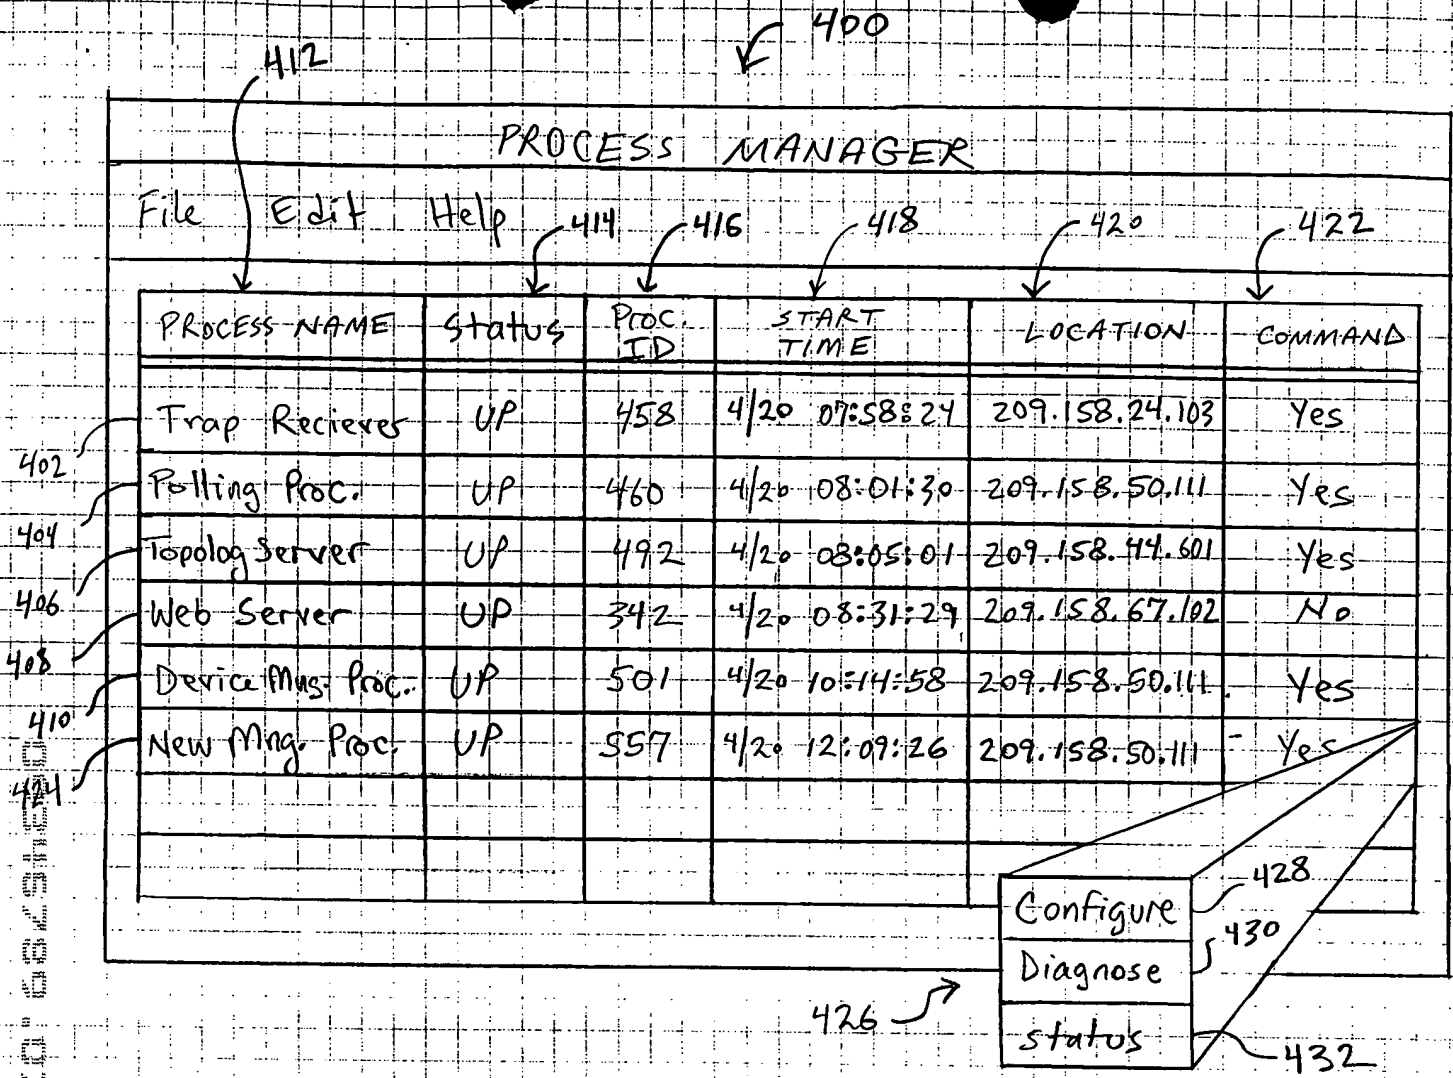 400
412
PROCESS MANAGER
File Edit Help
414 416 418 420 422
PROCESS NAME Status Proc. ID START TIME LOCATION COMMAND
Trap Reciever UP 458 4/20 07:58:24 209.158.24.103 Yes
402
Polling Proc. UP 460 4/20 08:01:30 209.158.50.111 Yes
404
Topolog Server UP 492 4/20 08:05:01 209.158.44.601 Yes
406
Web Server UP 342 4/20 08:31:29 209.158.67.102 No
408
Device Mng. Proc. UP 501 4/20 10:14:58 209.158.50.111 Yes
410
New Mng. Proc. UP 557 4/20 12:09:26 209.158.50.111 Yes
424
Configure 428
Diagnose 430
426
status 432